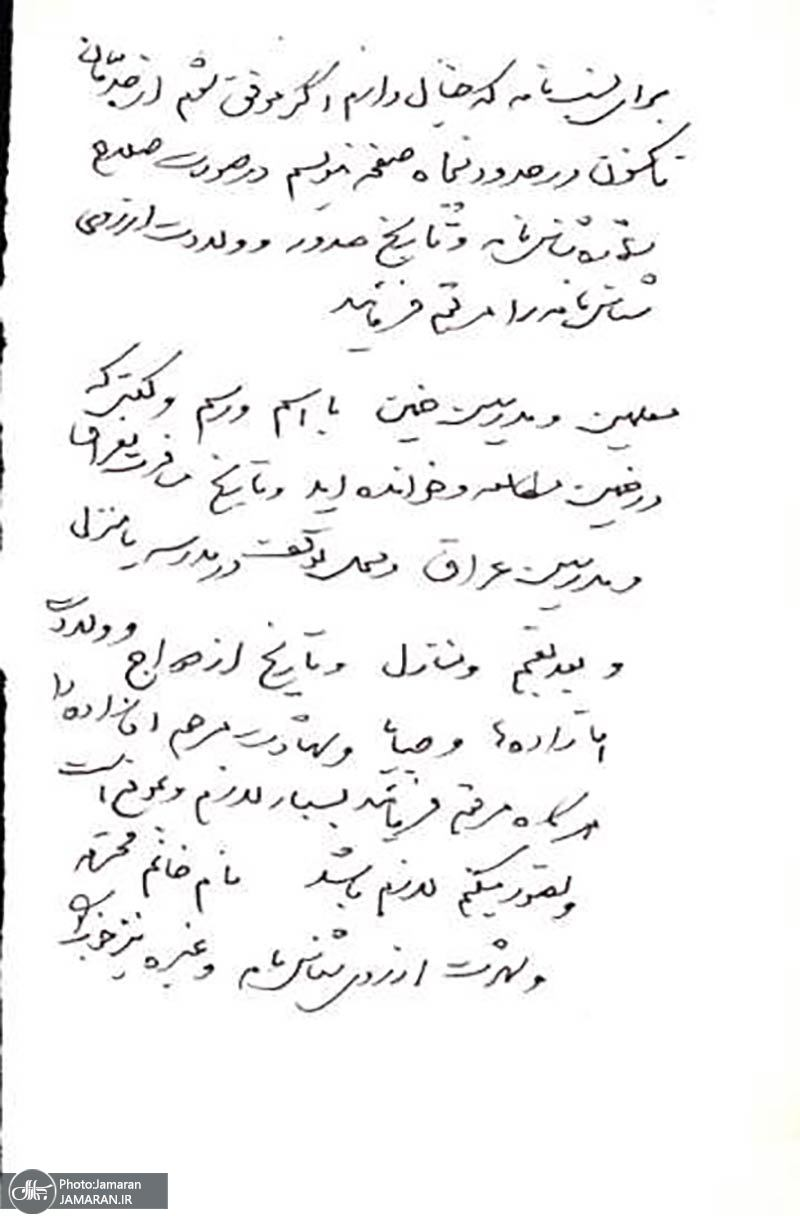 برای نسب نامه که خیال دارم اگر موفق شوم از جدمان
تاکنون در حدود پنجاه صفحه بنویسم در صورت صلاح
شماره شناس نامه و تاریخ صدور و ولادت از روی
شناس نامه را مرقوم فرمائید
معلمین و مدرسین خمین با اسم و رسم و کتبی که
در خمین مطالعه و خوانده اید و تاریخ مسافرت بعراق
و مدرسین عراق و محل توقف در مدرسه یا منزل
و بعد بقم و منازل و تاریخ ازدواج و ولادت
آقازاده ها و صبایا و شهادت مرحوم آقازاده را
هرگاه مرقوم فرمائید بسیار لازم و بموقع است
و تصور میکنم لازم باشد نام خانم محترمه
و شهرت از روی شناس نامه و غیره نیز خوبست
Photo:Jamaran
JAMARAN.IR